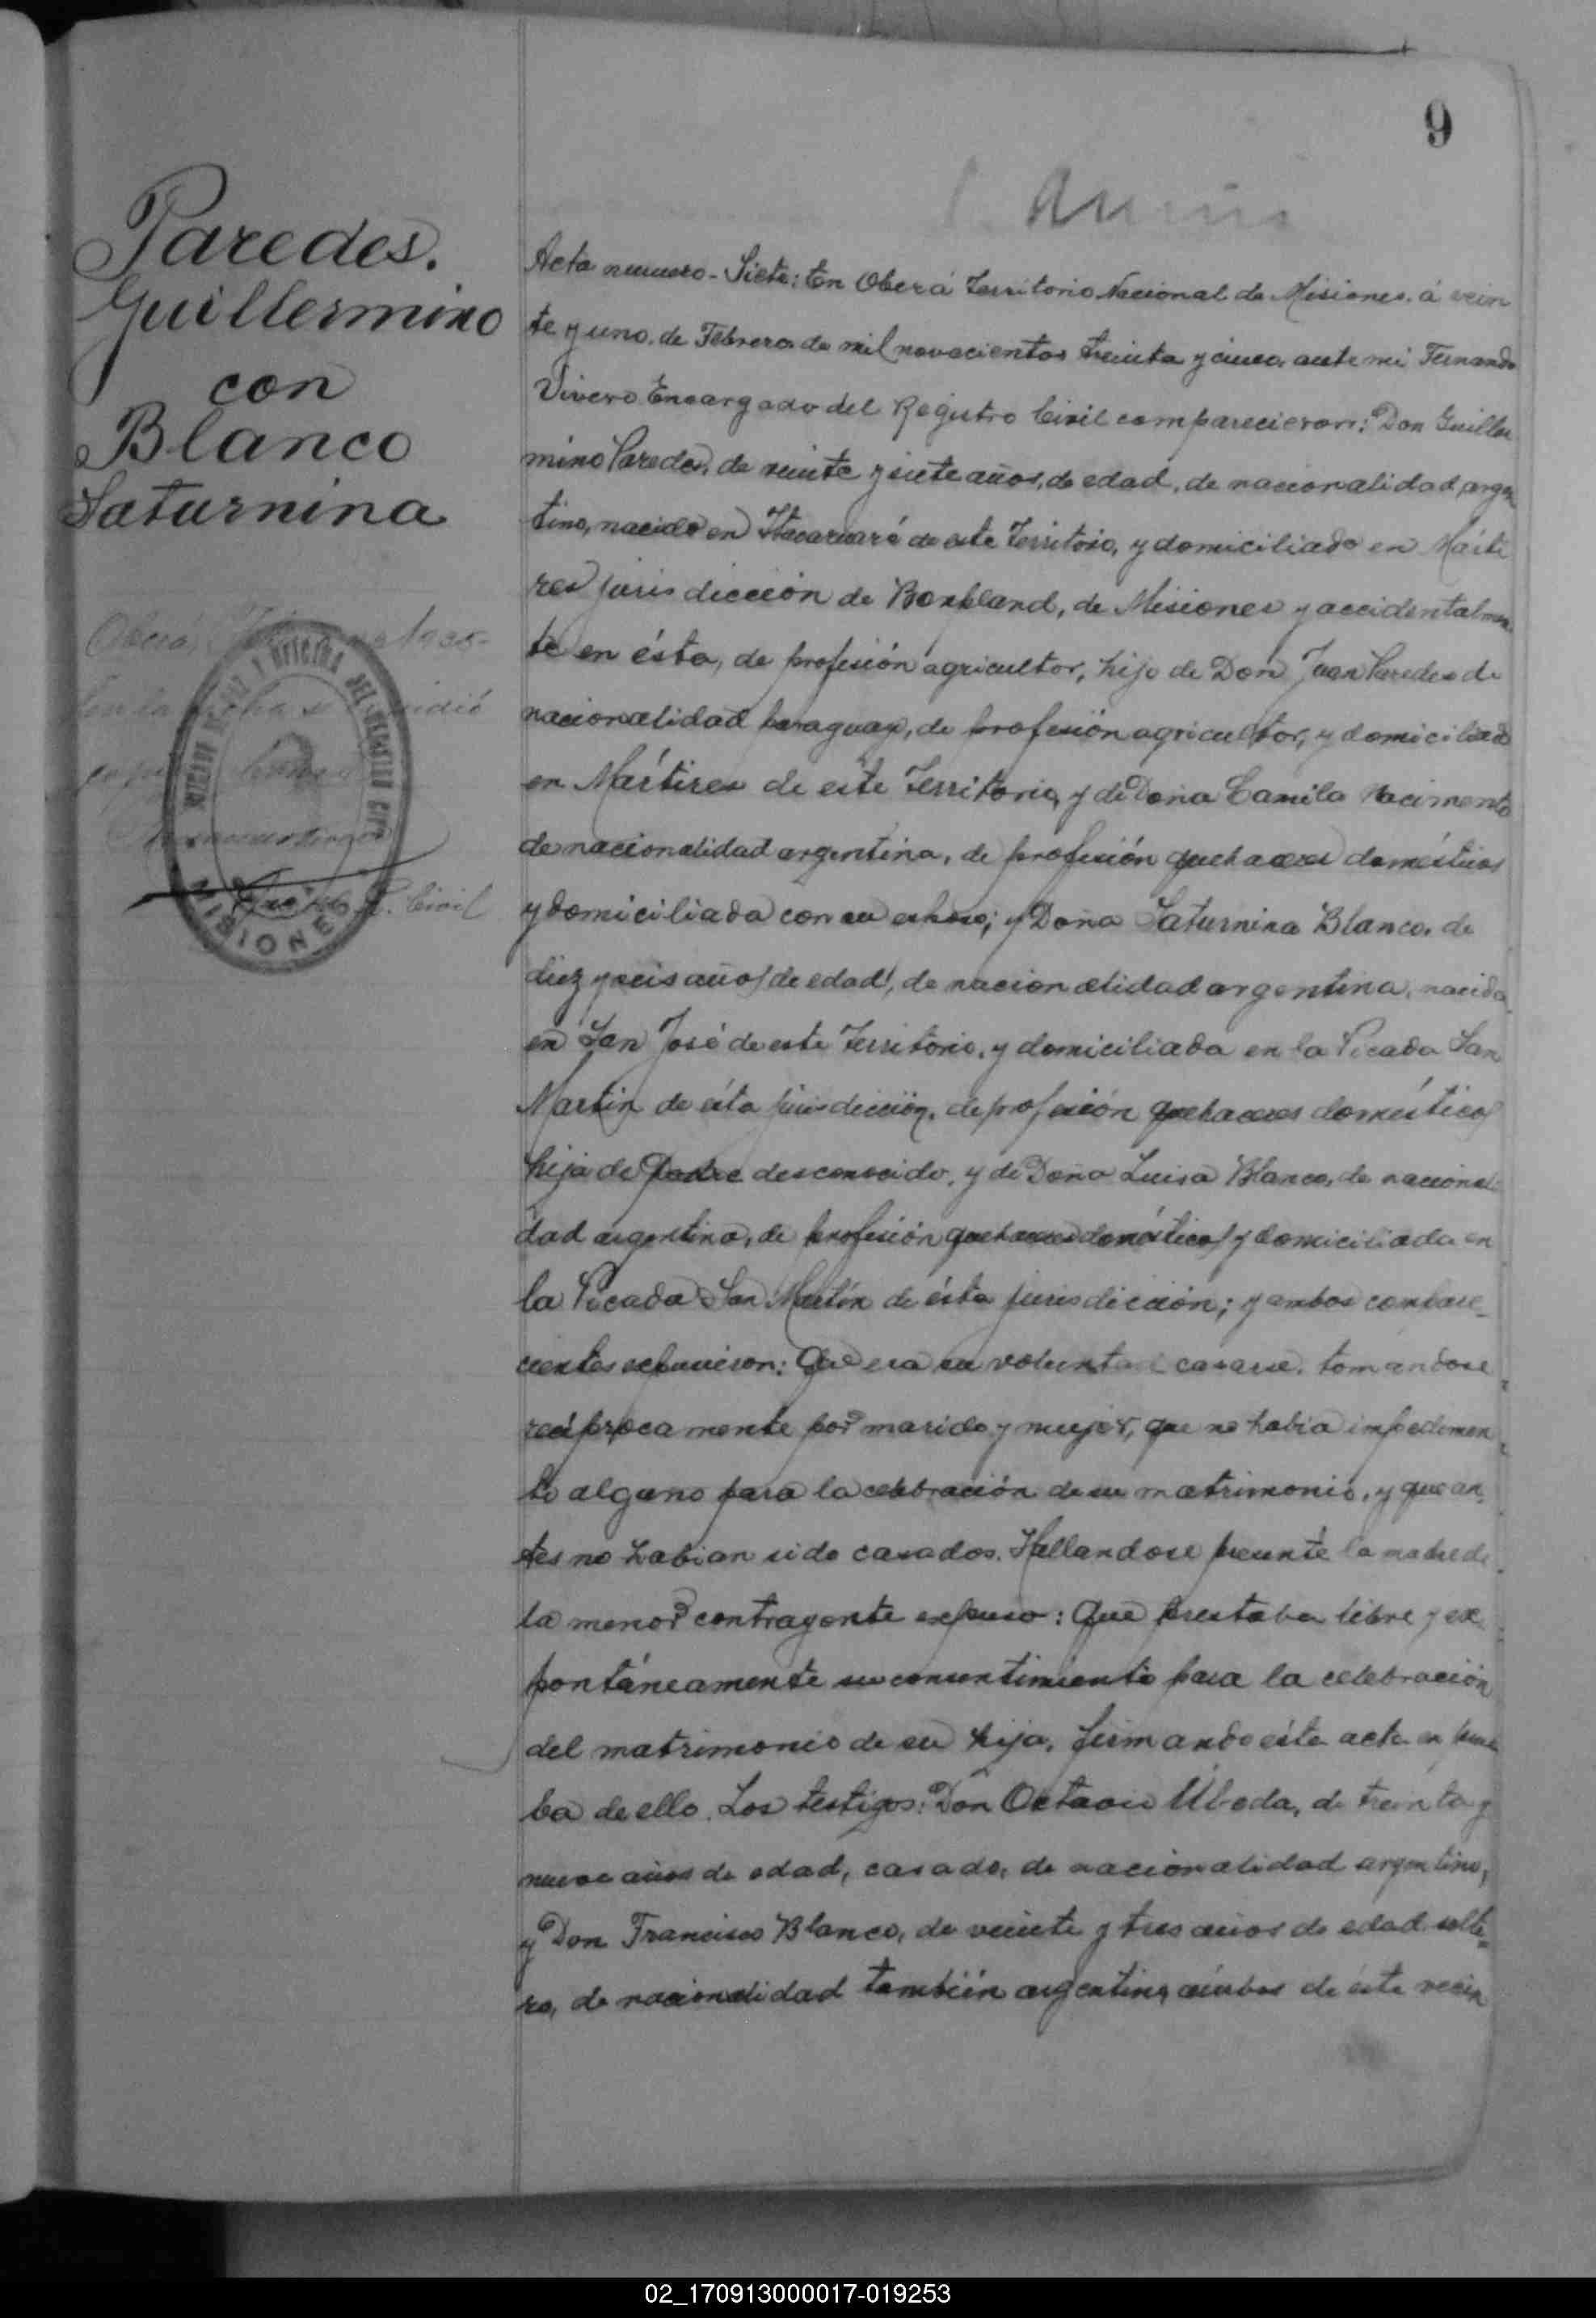 9
Paredes.
Guillermino
con
Blanco
Saturnina
Oberá,
en la fecha se expidió
copia
R. Civil
REGISTRO CIVIL
MISIONES
Acta numero-Siete: En Oberá Territorio Nacional de Misiones. á vein
te y uno. de Febrero de mil novecientos treinta y cinco. ante mi Fernando
Vivero Encargado del Registro Civil comparecieron: Don Guiller
mino Paredes, de veinte y siete años, de edad, de nacionalidad argen
tino, nacido en Itacaruaré de este Territorio, y domiciliado en Márti
res jurisdicción de Bonpland, de Misiones y accidentalmen
te en ésta, de profesión agricultor, hijo de Don Juan Paredes de
nacionalidad paraguay, de profesión agricultor, y domiciliado
en Mártires de este Territorio, y de Doña Camila Nacimento
de nacionalidad argentina, de profesión quehaceres domésticos
y domiciliada con su esposo; y Doña Saturnina Blanco. de
diez y seis años de edad, de nacionalidad argentina, nacida
en San José de este Territorio, y domiciliada en la Picada San
Martin de ésta jurisdicción, de profesión quehaceres domésticos
hija de Padre desconocido, y de Doña Luisa Blanco, de nacionali
dad argentina, de profesión quehaceres domésticos y domiciliada en
la Picada San Martín de ésta jurisdicción; y ambos compare_
cientes expusieron: Que era su voluntad casarse, tomandose
recíprocamente por marido y mujer, que no habia impedimen
to alguno para la celebración de su matrimonio, y que an
tes no habian sido casados. Hallandose presente la madre de
la menor contrayente expuso: Que prestaba libre y es
pontáneamente su consentimiento para la celebración
del matrimonio de su hija, firmando ésta acta en prue
ba de ello. Los testigos: Don Octavio Úbeda, de treinta y
nueve años de edad, casado, de nacionalidad argentino,
y Don Francisco Blanco, de veinte y tres años de edad solte=
ro, de nacionalidad también argentino, ámbos de éste vecin
02_170913000017-019253